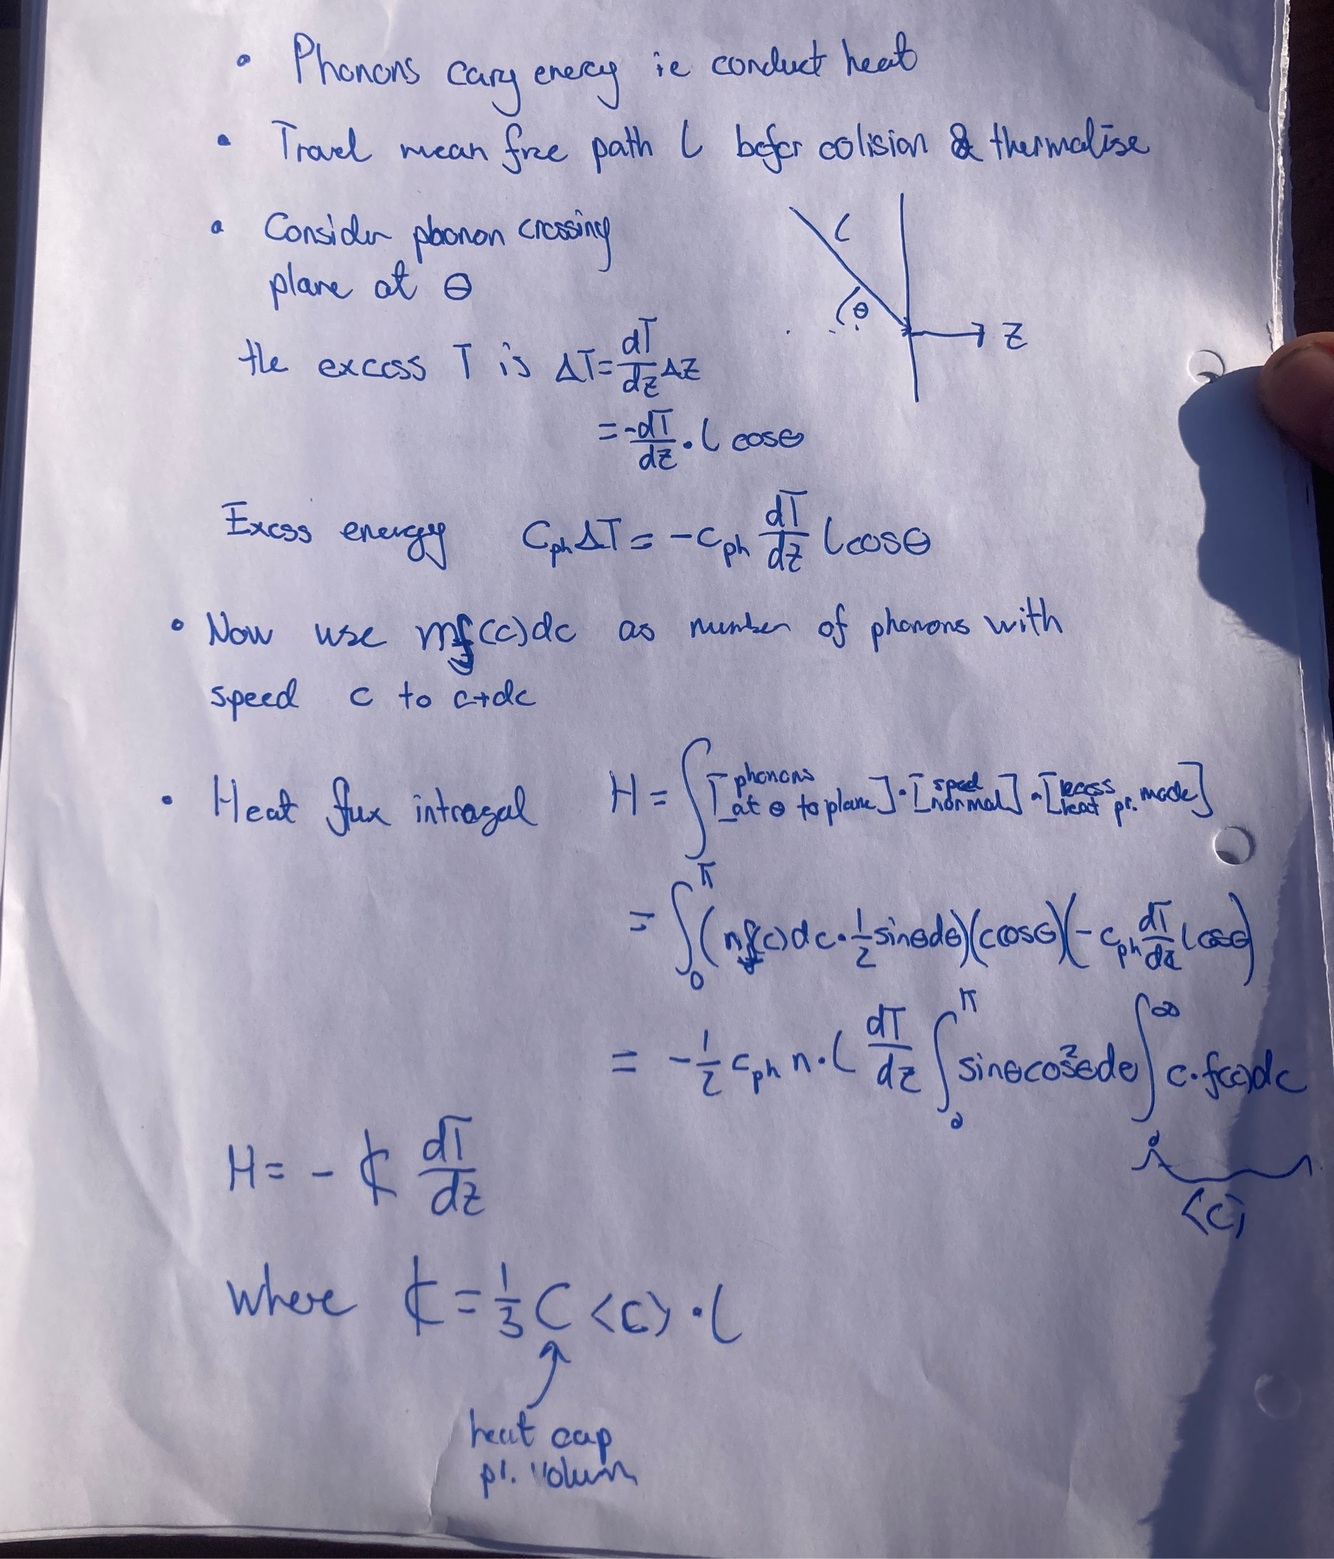 • Phonons cary energy ie conduct heat
• Travel mean free path l befor colision & thermalise
• Consider phonon crossing
plane at θ
l
θ
Z
the excess T is ΔT = dT/dz ΔZ
= -dT/dz · l cosθ
Excss energy C_ph ΔT = -c_ph dT/dz l cosθ
• Now use nf(c)dc as number of phonons with
speed c to c+dc
• Heat flux intragal H = ∫ [phonons at θ to plane] · [speed normal] · [excess heat pr. mode]
= ∫_0^π (nf(c)dc · 1/2 sinθdθ)(c cosθ)(-c_ph dT/dz l cosθ)
= -1/2 c_ph n · l dT/dz ∫_0^π sinθcos²θdθ ∫_0^∞ c·f(c)dc
<c>
H = - K dT/dz
where K = 1/3 C <c> · l
heat cap
pr. volum